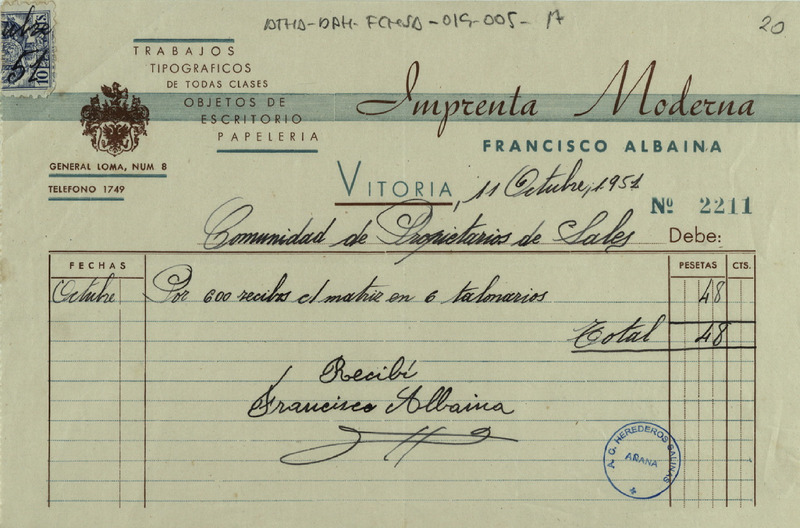 ATHA-DAH-FCHSA-019-005- 17
20
51
10
TRABAJOS
TIPOGRAFICOS
DE TODAS CLASES
OBJETOS DE
ESCRITORIO
PAPELERIA
Imprenta Moderna
FRANCISCO ALBAINA
GENERAL LOMA, NUM 8
TELEFONO 1749
VITORIA, 11 Octubre, 1951
Nº 2211
Comunidad de Propietarios de Sales Debe:
FECHAS PESETAS CTS.
Octubre Por 600 recibos c/ matriz en 6 talonarios 48
Total 48
Recibí
Francisco Albaina
A. G. HEREDEROS SALINAS
AÑANA